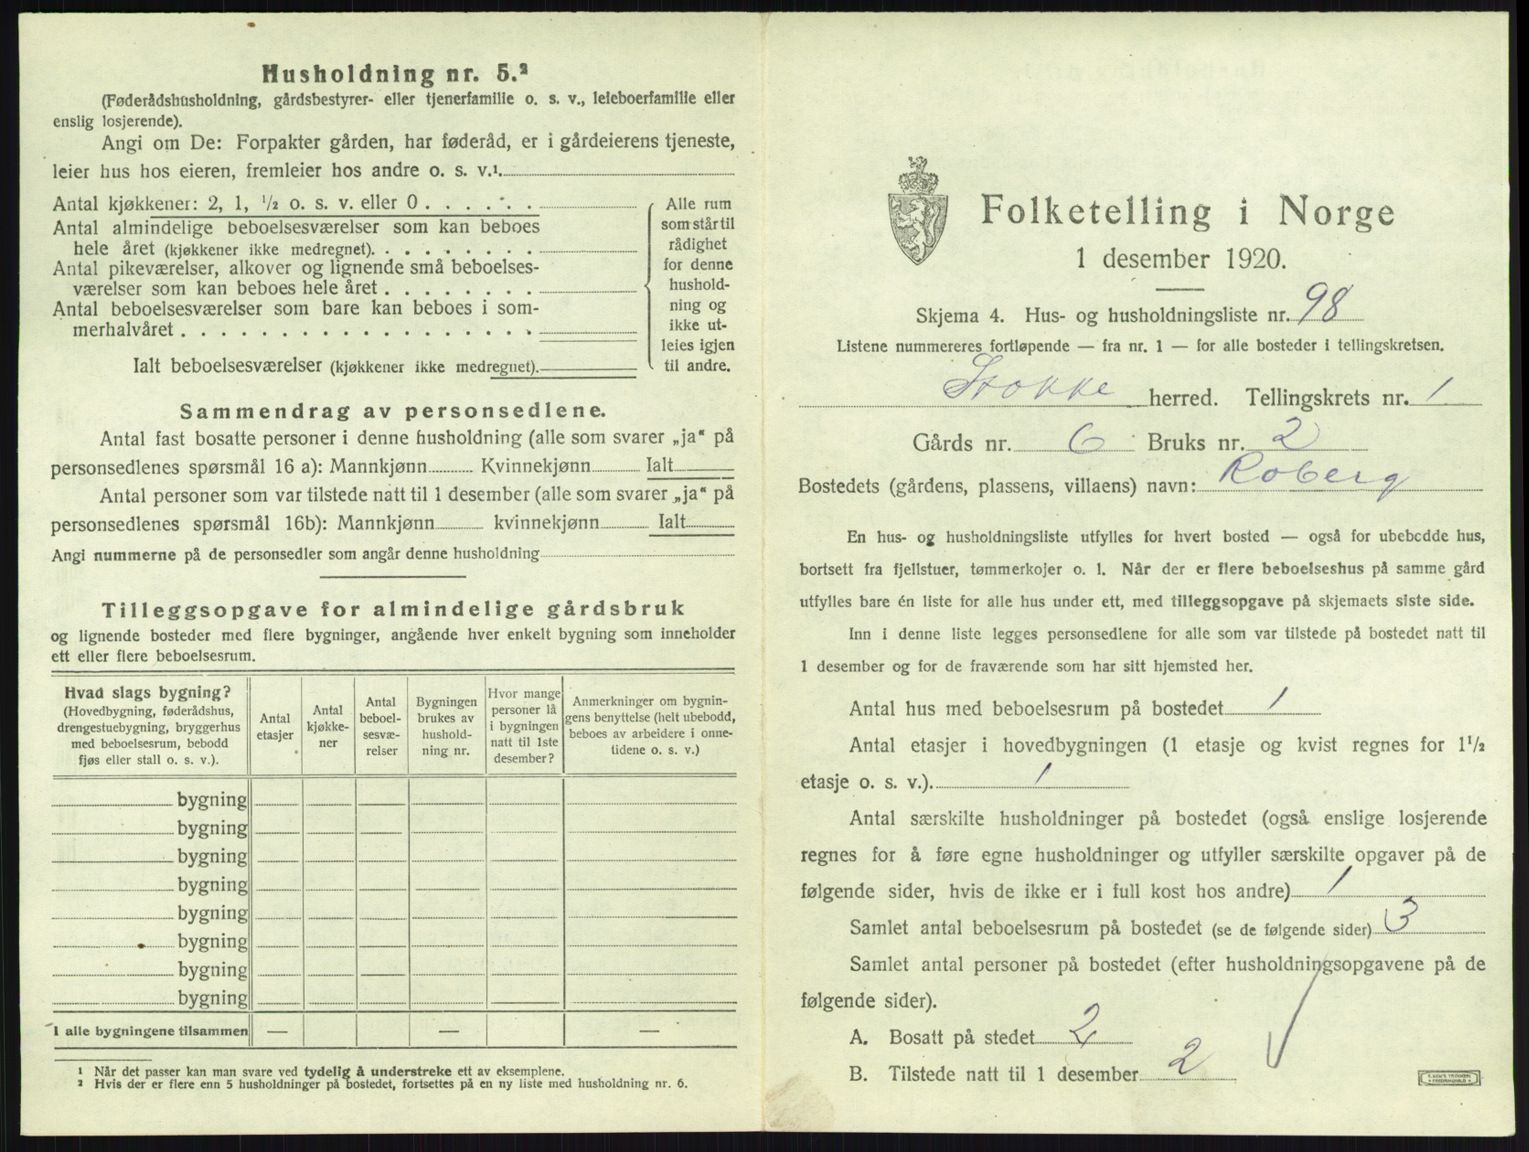 Husholdning nr. 5.²
(Føderådshusholdning, gårdsbestyrer- eller tjenerfamilie o. s. v., leieboerfamilie eller
enslig losjerende).
Angi om De: Forpakter gården, har føderåd, er i gårdeierens tjeneste,
leier hus hos eieren, fremleier hos andre o. s. v.¹.
Antal kjøkkener: 2, 1, ½ o. s. v. eller 0 . . . . . . .
Antal almindelige beboelsesværelser som kan beboes
hele året (kjøkkener ikke medregnet). . . . . . . . .
Antal pikeværelser, alkover og lignende små beboelses-
værelser som kan beboes hele året . . . . . . . .
Antal beboelsesværelser som bare kan beboes i som-
merhalvåret . . . . . . . . . . . . . . . . . . .
Ialt beboelsesværelser (kjøkkener ikke medregnet).
Alle rum
som står til
rådighet
for denne
hushold-
ning og
ikke ut-
leies igjen
til andre.
Sammendrag av personsedlene.
Antal fast bosatte personer i denne husholdning (alle som svarer „ja“ på
personsedlenes spørsmål 16 a): Mannkjønn Kvinnekjønn Ialt
Antal personer som var tilstede natt til 1 desember (alle som svarer „ja“ på
personsedlenes spørsmål 16b): Mannkjønn kvinnekjønn Ialt
Angi nummerne på de personsedler som angår denne husholdning
Tilleggsopgave for almindelige gårdsbruk
og lignende bosteder med flere bygninger, angående hver enkelt bygning som inneholder
ett eller flere beboelsesrum.
Hvad slags bygning?
(Hovedbygning, føderådshus,
drengestuebygning, bryggerhus
med beboelsesrum, bebodd
fjøs eller stall o. s. v.).
Antal
etasjer
Antal
kjøkke-
ner
Antal
beboel-
sesvæ-
relser
Bygningen
brukes av
hushold-
ning nr.
Hvor mange
personer lå
i bygningen
natt til 1ste
desember?
Anmerkninger om bygnin-
gens benyttelse (helt ubebodd,
beboes av arbeidere i onne-
tidene o. s. v.)
bygning
bygning
bygning
bygning
bygning
bygning
bygning
bygning
I alle bygningene tilsammen — — —
¹ Når det passer kan man svare ved tydelig å understreke ett av eksemplene.
² Hvis der er flere enn 5 husholdninger på bostedet, fortsettes på en ny liste med husholdning nr. 6.
Folketelling i Norge
1 desember 1920.
Skjema 4. Hus- og husholdningsliste nr. 98
Listene nummereres fortløpende — fra nr. 1 — for alle bosteder i tellingskretsen.
Stokke herred. Tellingskrets nr. 1
Gårds nr. 6 Bruks nr. 2
Bostedets (gårdens, plassens, villaens) navn: Roberg
En hus- og husholdningsliste utfylles for hvert bosted — også for ubebodde hus,
bortsett fra fjellstuer, tømmerkojer o. l. Når der er flere beboelseshus på samme gård
utfylles bare én liste for alle hus under ett, med tilleggsopgave på skjemaets siste side.
Inn i denne liste legges personsedlene for alle som var tilstede på bostedet natt til
1 desember og for de fraværende som har sitt hjemsted her.
Antal hus med beboelsesrum på bostedet 1
Antal etasjer i hovedbygningen (1 etasje og kvist regnes for 1½
etasje o. s. v.). 1
Antal særskilte husholdninger på bostedet (også enslige losjerende
regnes for å føre egne husholdninger og utfyller særskilte opgaver på de
følgende sider, hvis de ikke er i full kost hos andre) 1
Samlet antal beboelsesrum på bostedet (se de følgende sider) 3
Samlet antal personer på bostedet (efter husholdningsopgavene på de
følgende sider).
A. Bosatt på stedet 2
B. Tilstede natt til 1 desember 2